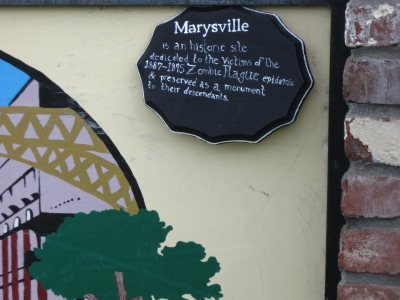 Marysville
is an historic site
dedicated to the victims of the
1887-1895 Zombie Plague epidemic
& preserved as a monument
to their descendants.